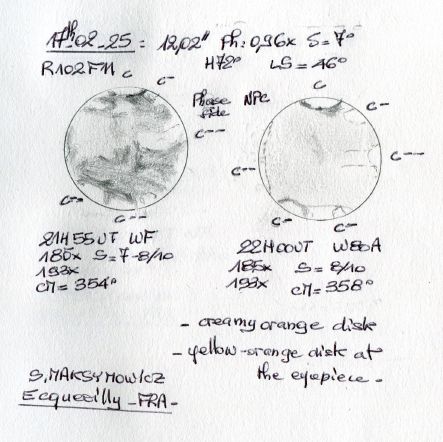 17th-02-25 = 12,02" Ph: 0,96x S=7°
R102FM H72° LS=46°
C C- C
Phase side NPC C-
C-- C--
C--
C-- C- C-
C--
21H55UT WF 22H00UT W80A
185x S=7-8/10 185x S=8/10
193x 193x
CM=354° CM=358°
- creamy orange disk
- yellow-orange disk at
the eyepiece -
S. MAKSYMOWICZ
Ecquevilly -FRA-